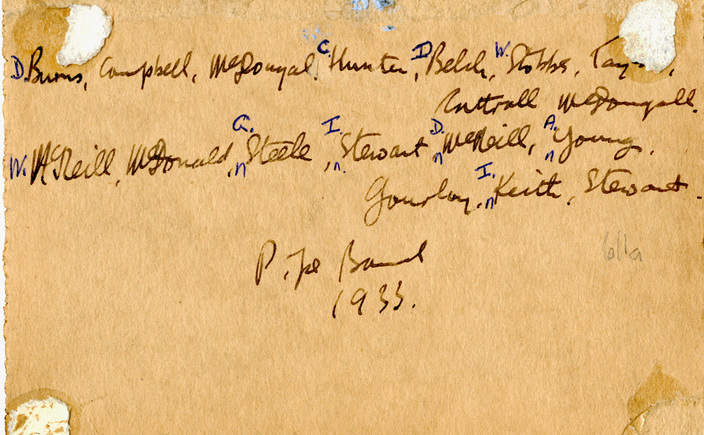 D. Burns, Campbell, McDougal, C. Hunter, D. Belch, W. Stobbs,
McDougall.
W. McNeill, McDonald, G. Steele, I. Stewart, D. McNeill, A. Young,
Gourlay, I. Keith, Stewart.
Pipe Band
1933.
6/1a